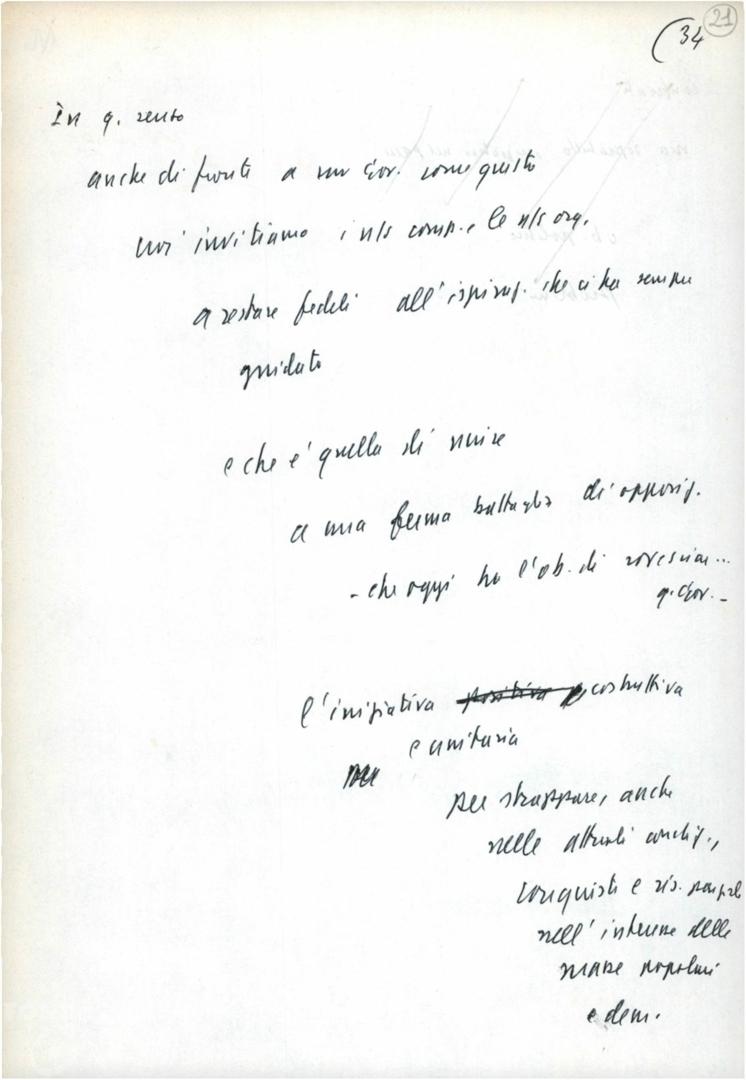 (34 21
In q. senso
anche di fronte a un Gov. come questo
noi invitiamo i n/s comp. e le n/s org.
a restare fedeli all'ispiraz. che ci ha sempre
guidato
e che e' quella di unire
a una ferma battaglia di opposiz.
- che oggi ha l'ob. di rovesciar...
q. Gov. -
l'iniziativa positiva e costruttiva
e unitaria
per strappare, anche
nelle attuali condiz.,
conquiste e ris.
nell'interesse delle
masse popolari
e dem.